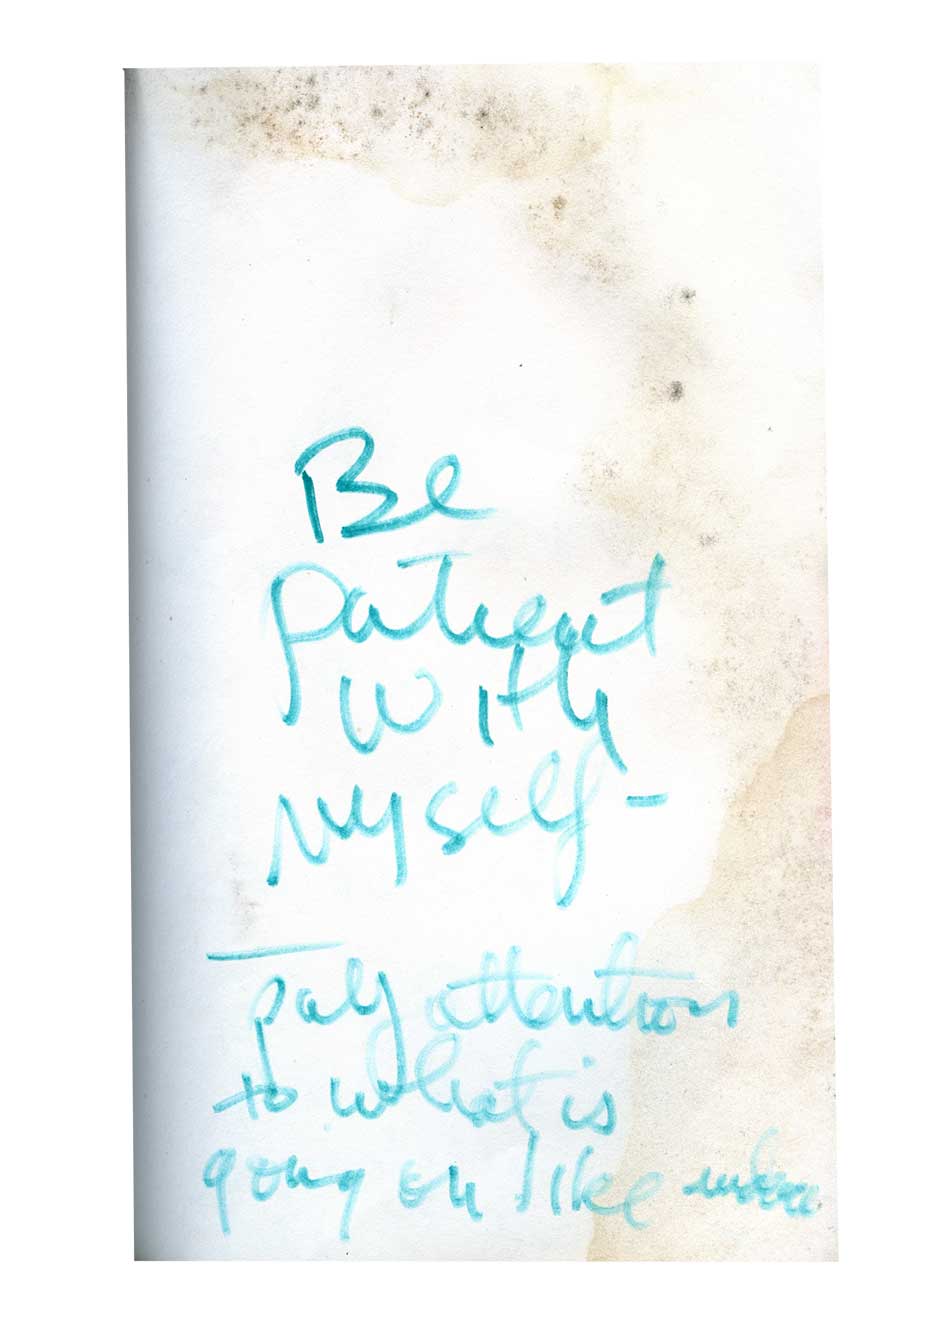 Be
patient
with
myself -
— pay attention
to what is
going on like